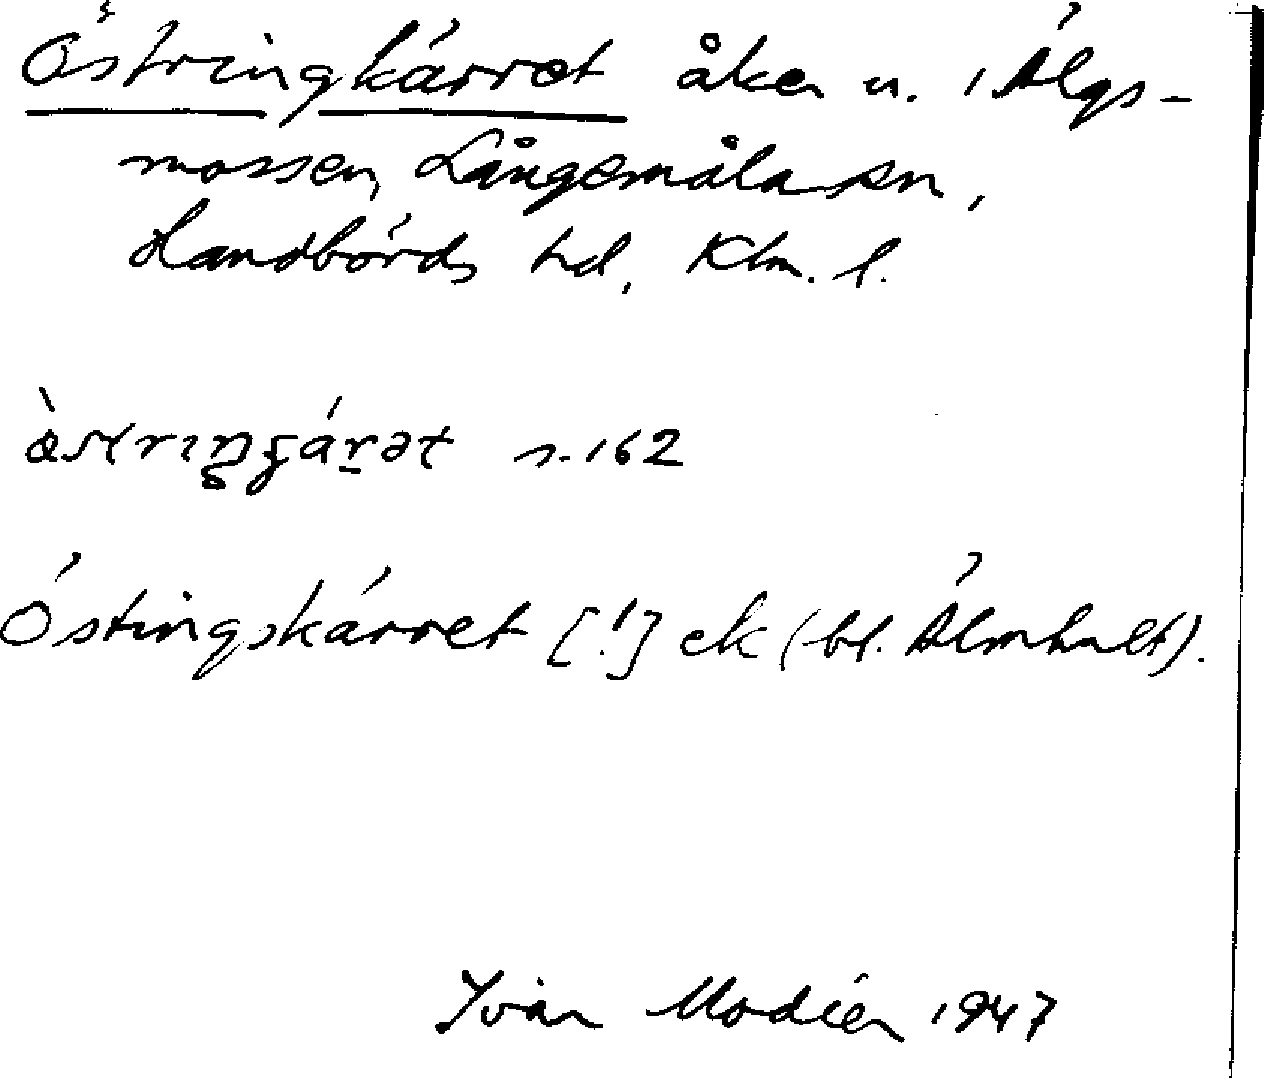 Östringkärret åker n. i Älgs-
mossen, Långemåla sn,
Handbörds hd, Klm. l.
s. 162
Östingskärret [!] ek (bl. Älmhult).
Ivar Modéer 1947